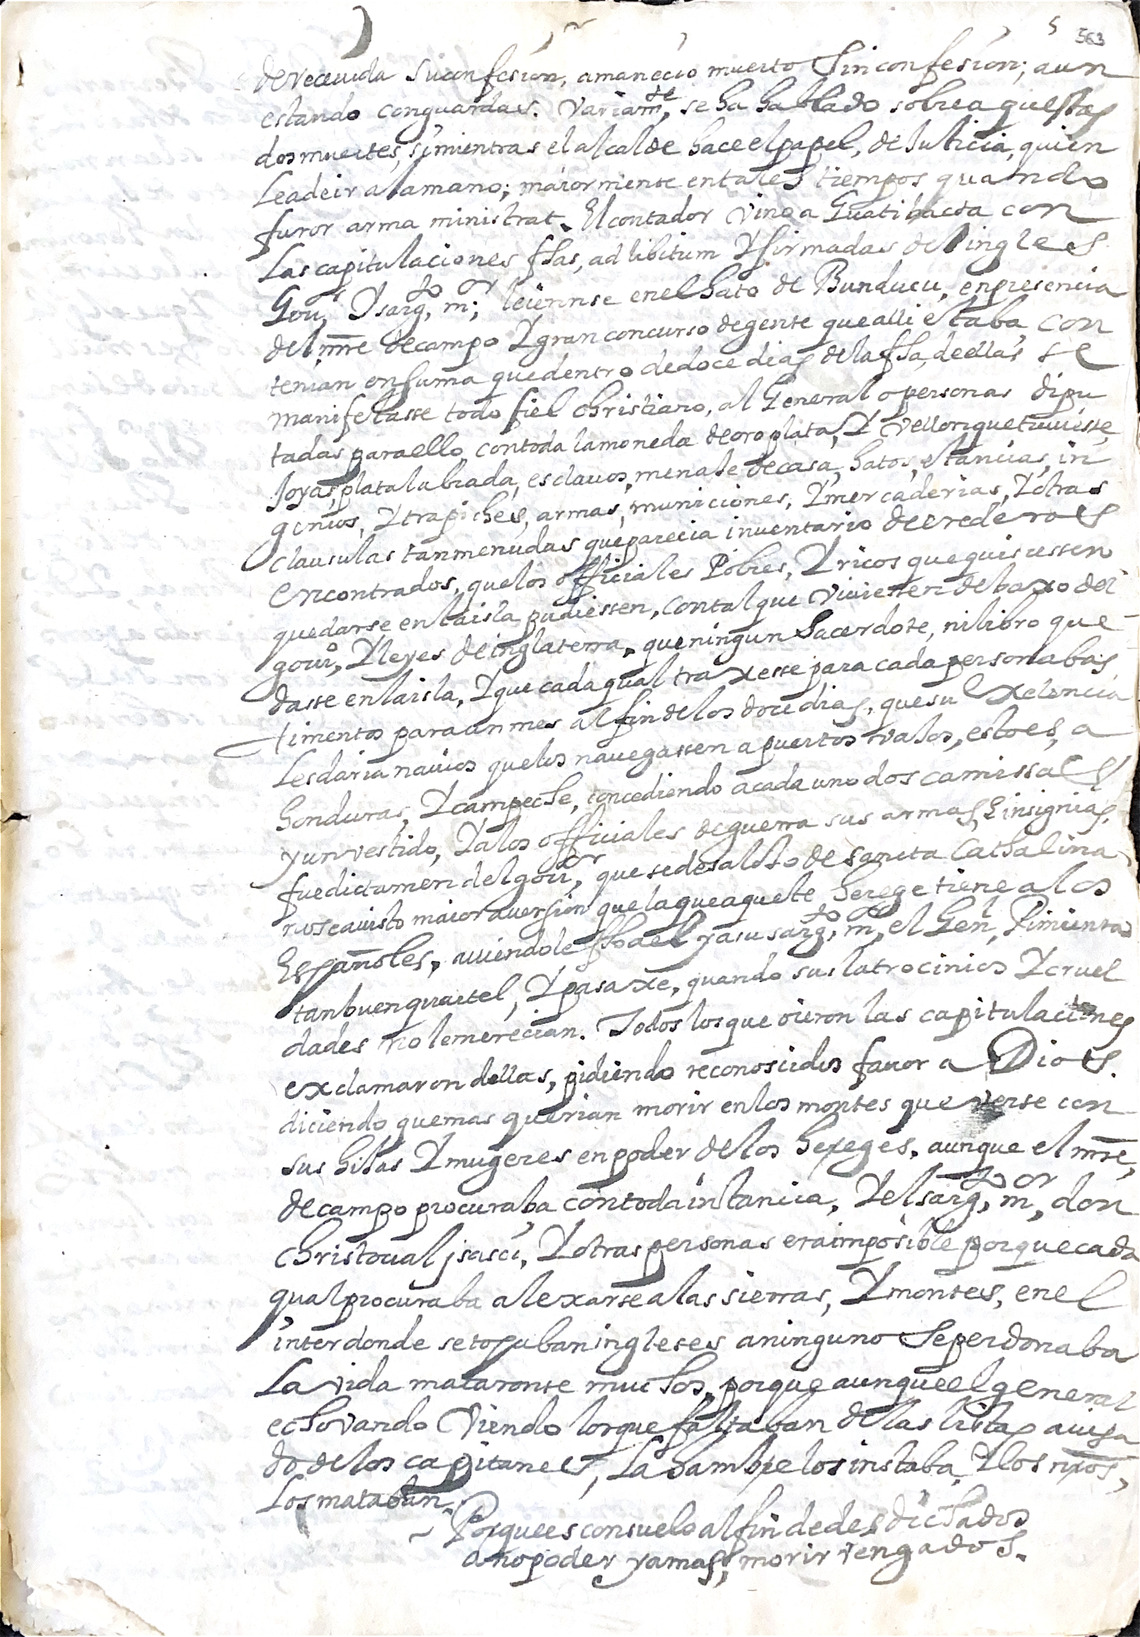 5 563
de recevida su confesion, amanecio muerto sin confesion; aun
estando conguardas. Variamte, se ha hablado sobre aquestas
dos muertes, si mientras el alcalde hace el papel, de Justicia, quien
Le a de ir a la mano; maiormente en tales tiempos quando
furor arma ministrat. El contador vino a Guatibacoa con
Las capitulaciones fhas, ad libitum Y firmadas del ingles
Gou,or Y sarg,to m,or; leieronse en el hato de Bunducu, en presencia
del mre de campo Y gran concurso de gente que alli estaba con
tenian en suma que dentro de doce dias de la fha, de ellas se
manifestasse todo fiel christiano, al General o personas dipu
tadas para ello, con toda la moneda de oro plata, Y vellon que tuviesse,
Joyas, plata labrada, esclavos, menaje de casa, hatos, estancias, in
genios, Y trapiches, armas, municiones, Y mercaderias, Y otras
clausulas tan menudas que parecia inventario de erederos
encontrados, que los officiales Pobres, Y ricos que quisiessen
quedarse en la isla pudiessen, con tal que viviessen debaxo del
gouo, Y leyes de inglaterra, que ningun sacerdote, ni libro que
dasse en la isla, Y que cada qual traxesse para cada persona bas
timentos para un mes al fin de los doce dias, que su Exelencia
Les daria navios que los navegassen a puertos tralos, esto es, a
Honduras, Y campeche, concediendo a cada uno dos camissas
y un vestido, Y a los officiales de guerra sus armas, E insignias,
fue dictamen del gouor, que se desalojo de sancta Cathalina
no se a visto maior aversion que la que aqueste herege tiene a los
Españoles, aviendole fho a el y a su sarg,to m,or el Genl, Pimienta
tan buen quartel, Y pasaxe, quando sus latrocinios Y cruel
dades no le merecian. Todos los que oieron las capitulaciones
exclamaron dellas, pidiendo reconoscidos favor a Dios.
diciendo que mas querian morir en los montes que verse con
sus hijas Y mugeres en poder de los hereges, aunque el mre,
de campo procuraba con toda instancia, Y el sarg,to m,or don
christoual jsasci, Y otras personas era imposible porque cada
qual procuraba alexarse a las sierras, Y montes, en el
inter donde se topaban ingleses a ninguno se perdonaba
La vida mataronse muchos, porque aunque el general
echo vando viendo los que faltaban de las listas avisa
do de los capitanes, la hambre los instaba, Y los nros,
Los mataban.
Porque es consuelo al fin de desdichados
a no poder ya mas, morir vengados.